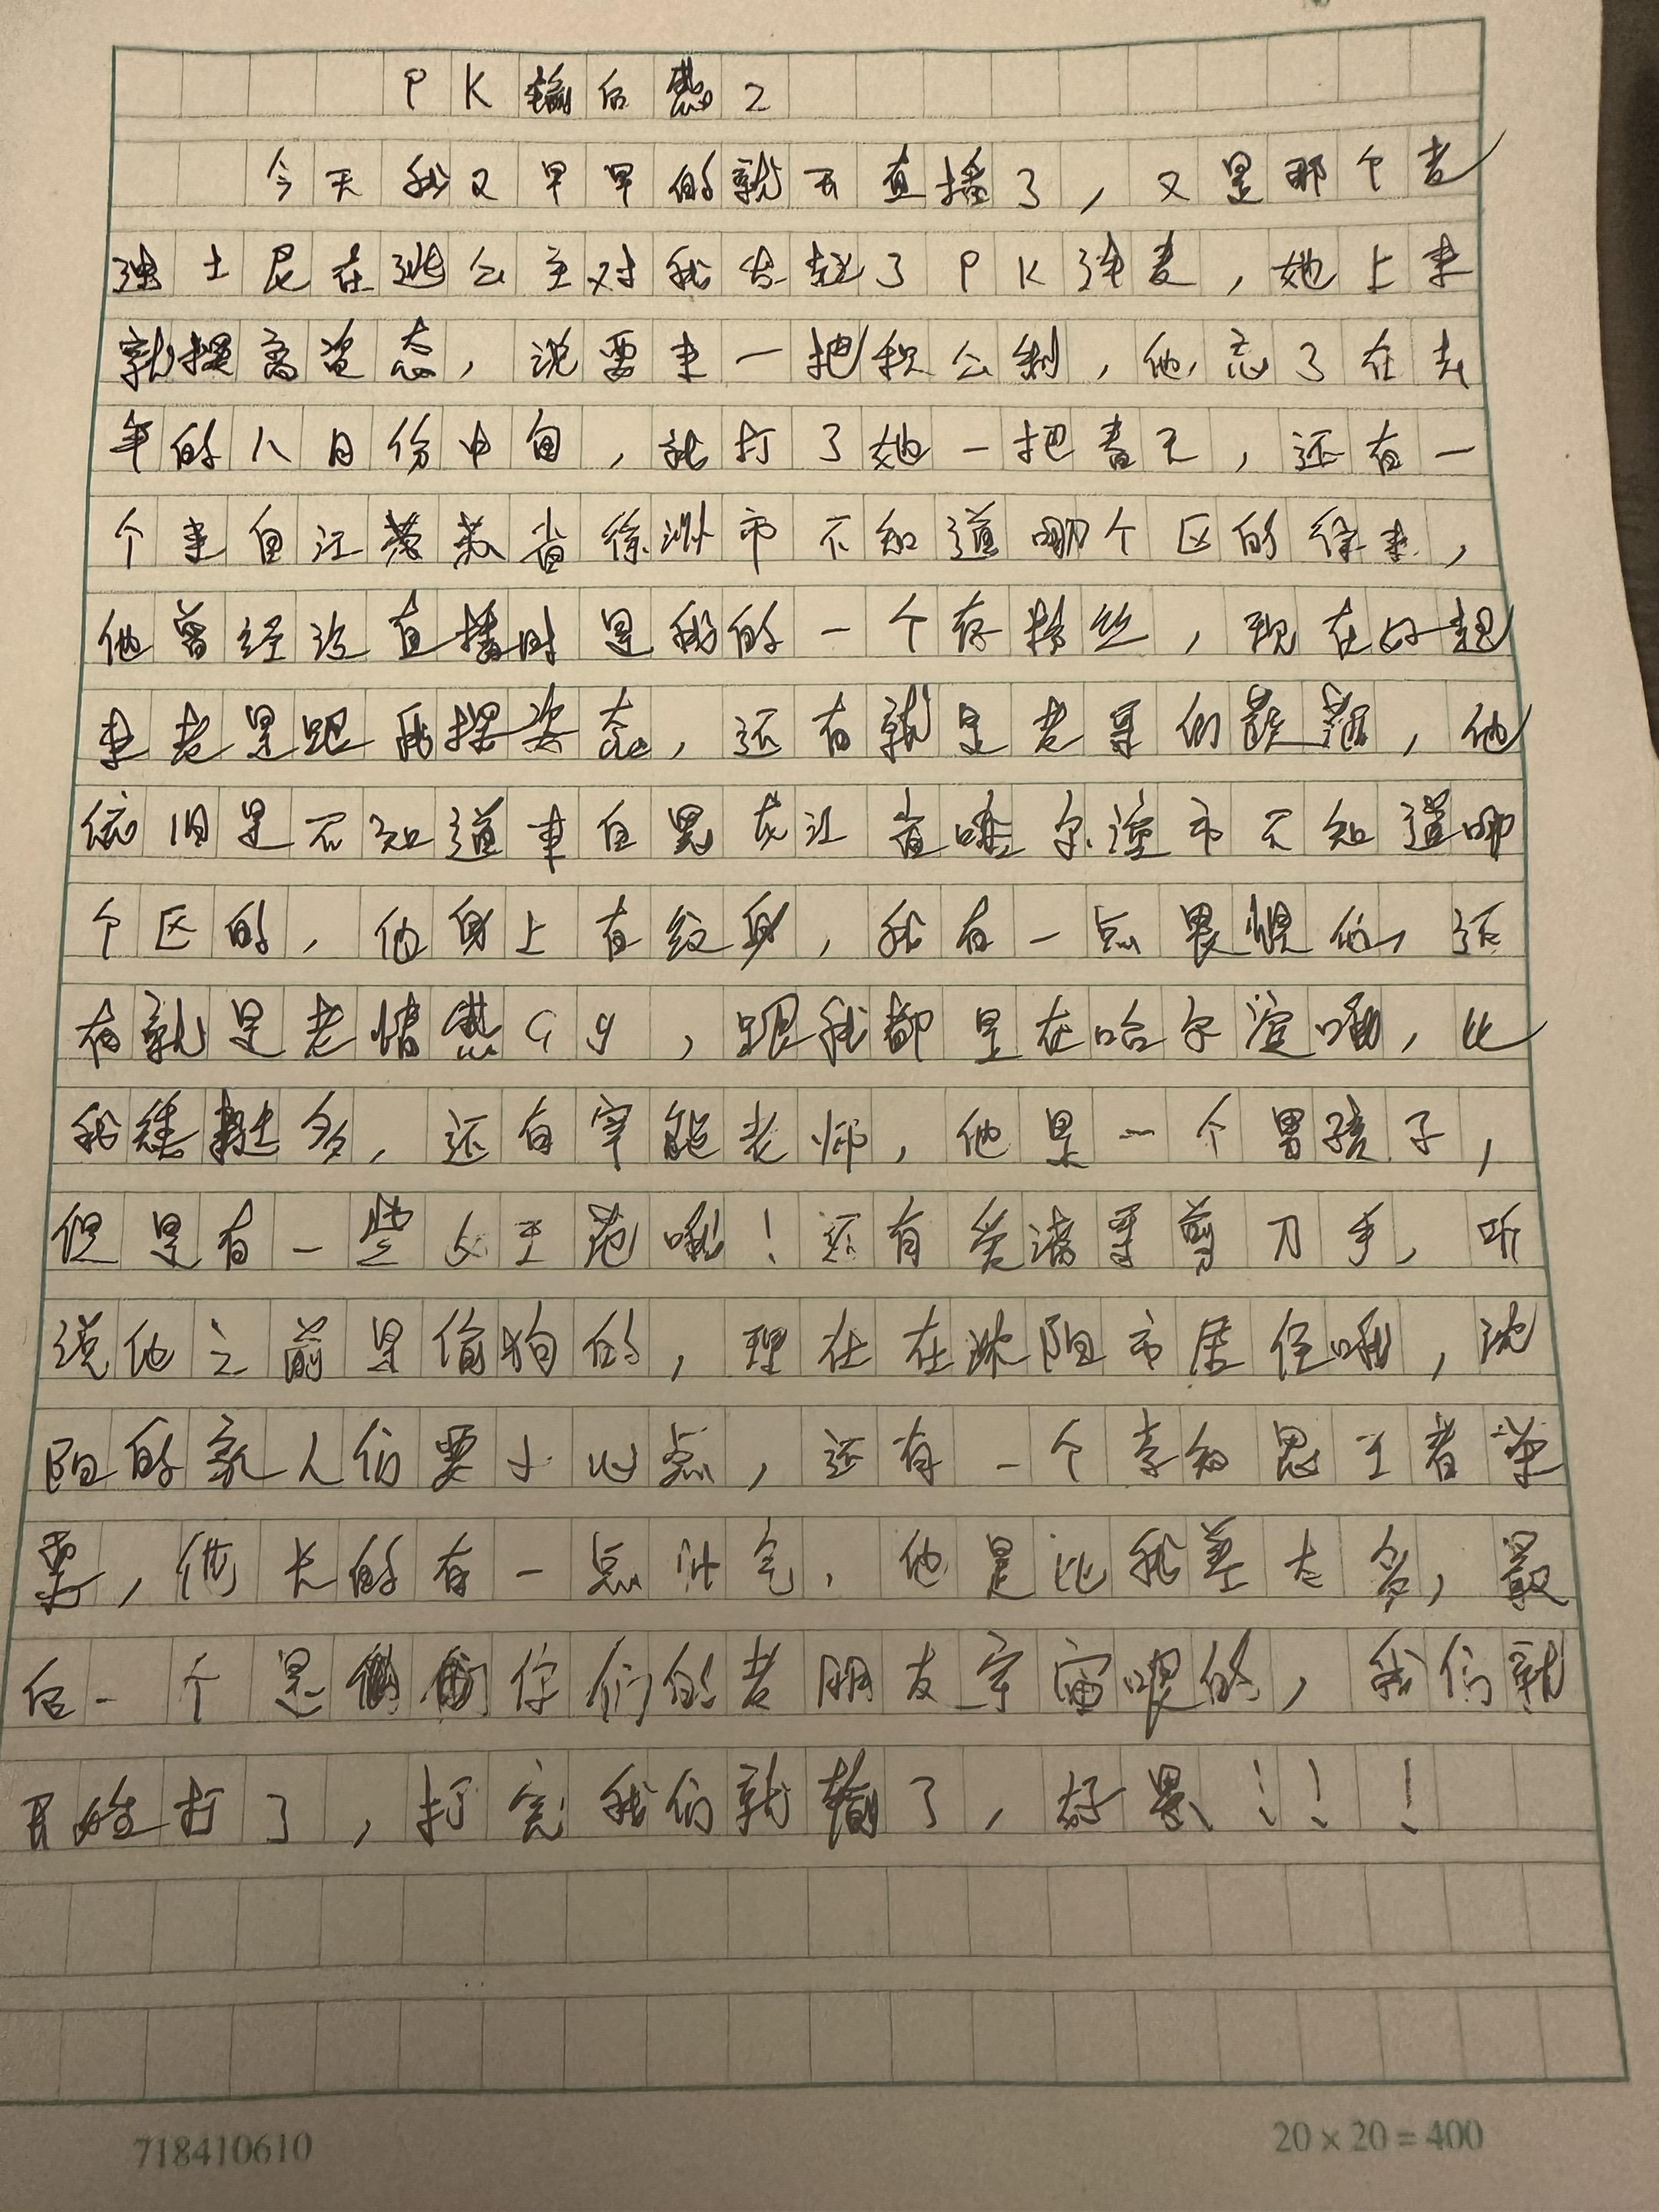 PK输后感2
今天我又早早的就开直播了，又是那个老
速土尼在逃公主对我发起了PK连麦，她上来
就摆高姿态，说要来一把积公制，他忘了在去
年的八月份中旬，我打了她一把春天，还有一
个来自江苏省徐洲市不知道哪个区的徐来，
他曾经没直播时是我的一个存粉丝，现在好起
来老是跟我摆姿态，还有就是老哥们，他
依旧是不知道来自黑龙江省哈尔滨市不知道哪
个区的，他身上有纹身，我有一点畏惧他，还
有就是老情感G9，跟我都是在哈尔滨哦，比
我矮挺多，还有宰能老师，他是一个男孩子，
但是有一些女王范哦！还有爱滴哥剪刀手，听
说他之前是偷狗的，现在在沈阳市居住哦，沈
阳的家人们要小心点，还有一个李知恩王者荣
耀，他长的有一点帅气，他是比我差太多，最
后一个是你们的老朋友宇宙嗯的，我们就
开始打了，打完我们就输了，好累！！！
718410610
20×20=400